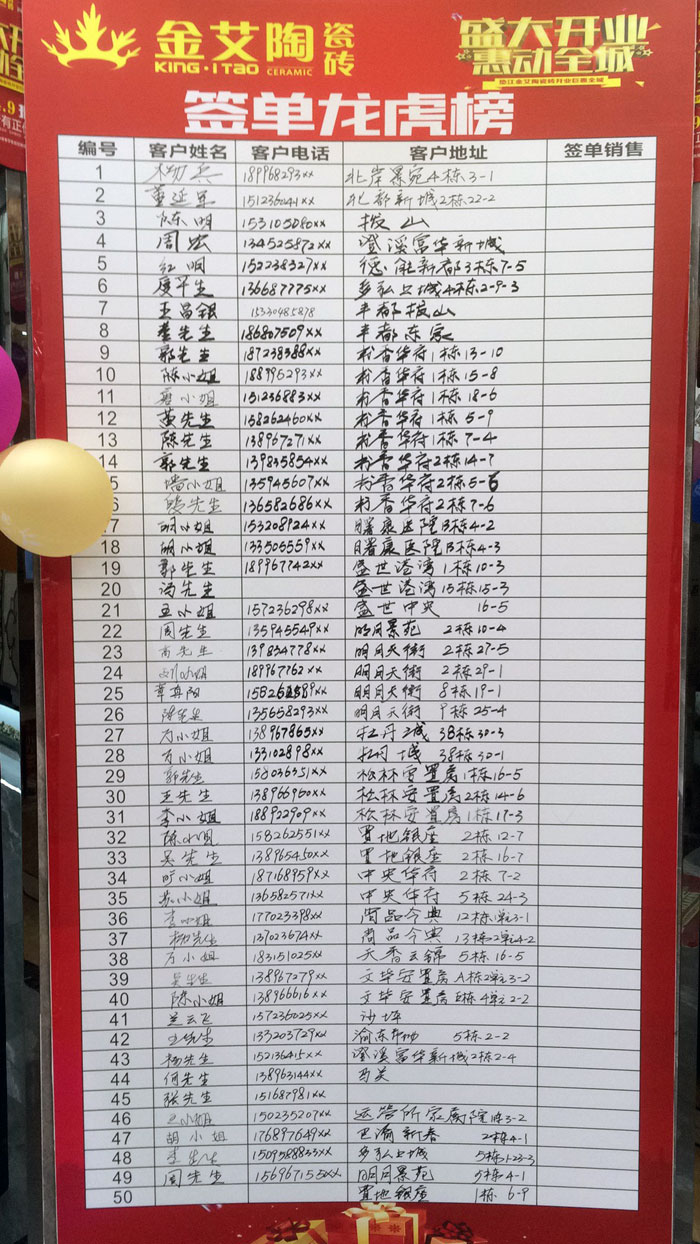 金艾陶 瓷砖
KING·ITAO CERAMIC
盛大开业
惠动全城
垫江金艾陶瓷砖开业巨惠全城
签单龙虎榜
编号 客户姓名 客户电话 客户地址 签单销售
1 杨兵 189968293xx 北岸景苑4栋3-1
2 董延军 151236041xx 北部新城2栋22-2
3 陈明 153105080xx 按山
4 周宏 134525872xx 澄溪富华新城
5 红明 152238327xx 德能新都3栋7-5
6 136687775xx 多弘上城4栋2-9-3
7 王昌银 15330485878 丰都按山
8 李先生 186807509xx 丰都东家
9 郭先生 187238388xx 桂香华府1栋13-10
10 陈小姐 188996293xx 桂香华府1栋15-8
11 小姐 151236883xx 桂香华府1栋18-6
12 黄先生 158262460xx 桂香华府1栋5-9
13 陈先生 138967271xx 桂香华府1栋7-4
14 郭先生 139835854xx 桂香华府2栋14-7
5 小姐 135945607xx 桂香华府2栋5-6
6 先生 136582686xx 桂香华府2栋7-6
7 胡小姐 153208924xx 曙康医院B栋4-2
18 胡小姐 133505559xx 曙康医院B栋4-3
19 郭先生 189967742xx 盛世港湾1栋10-3
20 冯先生 盛世港湾15栋15-3
21 王小姐 157236298xx 盛世中央 16-5
22 周先生 135945549xx 明月景苑 2栋10-4
23 高先生 139834778xx 明月天街 2栋27-5
24 刘小姐 189967762xx 明月天街 2栋29-1
25 章兵阳 158262589xx 明月天街 8栋19-1
26 先生 135658293xx 明月天街 9栋25-4
27 方小姐 138967865xx 牡丹城 38栋30-3
28 方小姐 133102898xx 牡丹城 38栋30-1
29 郭先生 156036351xx 松林安置房1栋16-5
30 王先生 138966960xx 松林安置房2栋14-6
31 李小姐 188922909xx 松林安置房1栋17-3
32 陈小姐 158262551xx 置地银座 2栋12-7
33 吴先生 138965450xx 置地银座 2栋16-7
34 小姐 187168959xx 中央华府 2栋7-2
35 苏小姐 136582571xx 中央华府 5栋24-3
36 李小姐 177023398xx 尚品今典 12栋1单3-1
37 杨先生 137023674xx 尚品今典 13栋2单元4-2
38 方小姐 183151025xx 天香云锦 5栋16-5
39 吴先生 138967279xx 文华安置房A栋2单3-2
40 陈小姐 138966616xx 文华安置房E栋4单2-2
41 兰云飞 157236025xx 沙坪
42 133203729xx 渝东 5栋2-2
43 杨先生 152136415xx 澄溪富华新城2栋2-4
44 何先生 138963144xx
45 张先生 151687981xx
46 小姐 150235207xx 运管所家属院1栋3-2
47 胡小姐 176897649xx 巴渝新春 2栋4-1
48 李先生 1509588833xx 多弘上城 5栋1-23-3
49 周先生 156967155xx 明月景苑 5栋4-1
50 置地银座 1栋 6-9